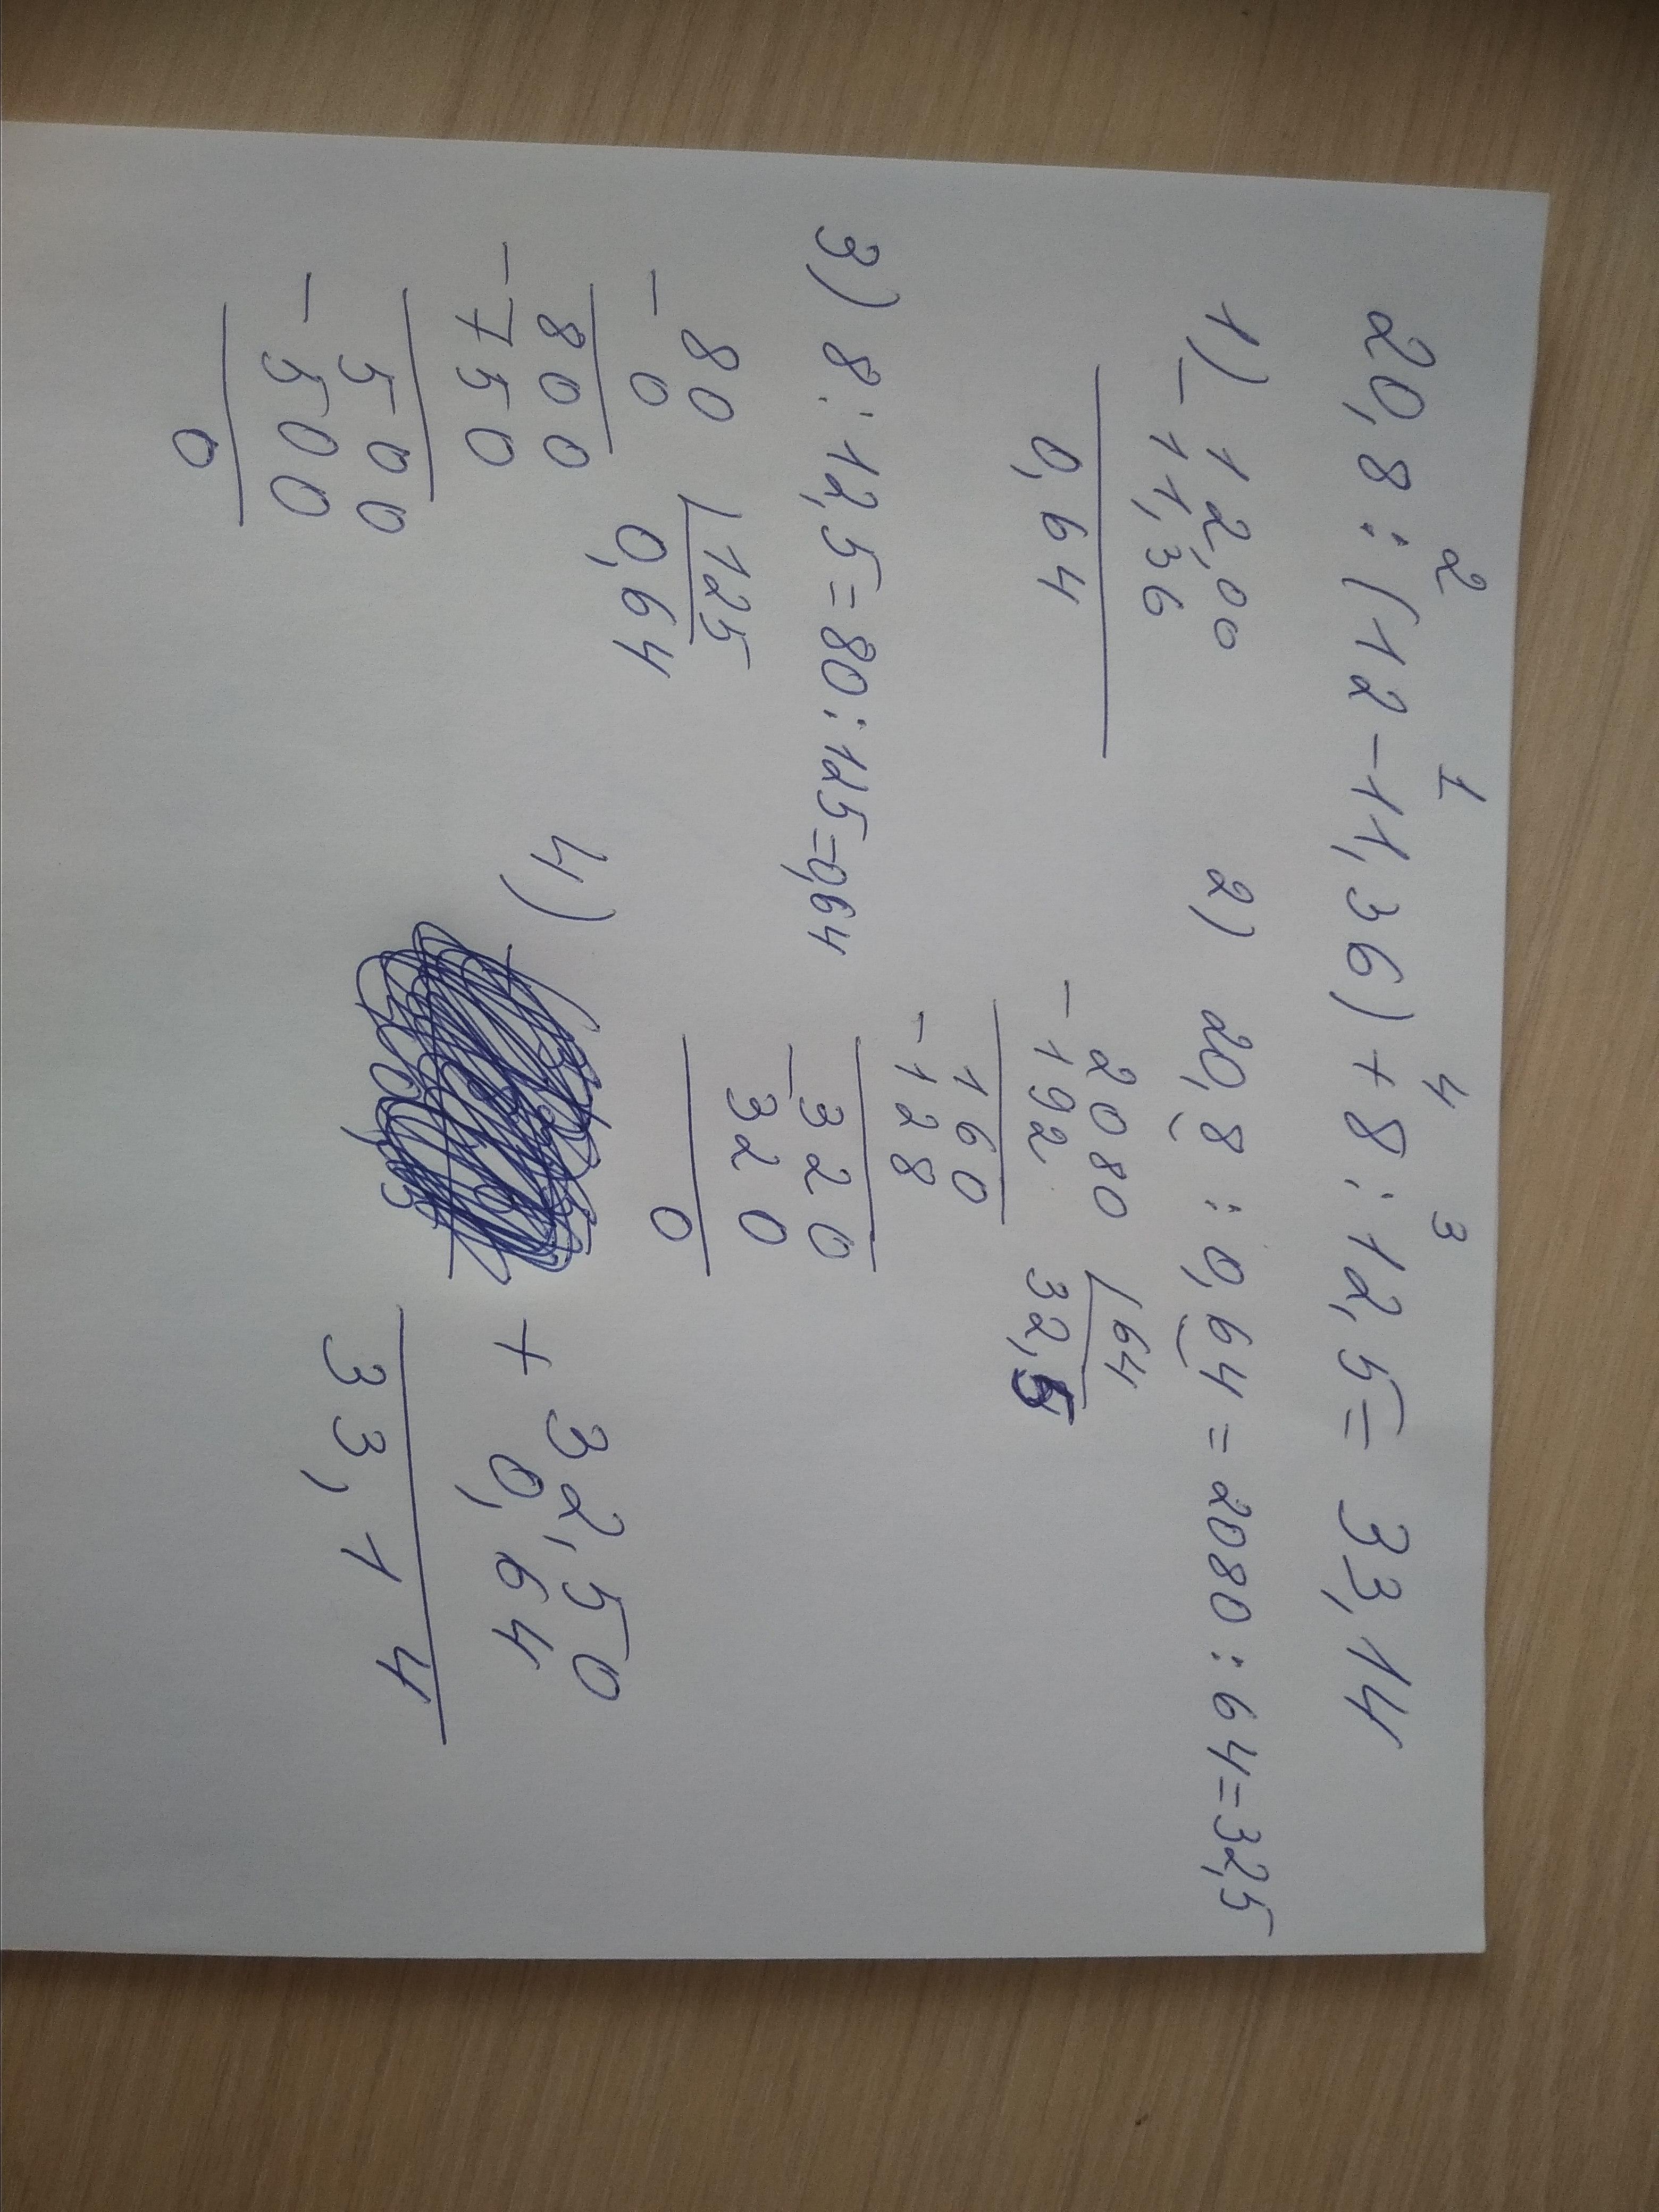 2 1 4 3
20,8 : (12 - 11,36) + 8 : 12,5 = 33,14
1) - 12,00
11,36
0,64
2) 20,8 : 0,64 = 2080 : 64 = 32,5
- 2080 64
192 32,5
160
- 128
- 320
320
0
3) 8 : 12,5 = 80 : 125 = 0,64
- 80 125
0 0,64
800
- 750
500
- 500
0
4)
+ 32,50
0,64
33,14